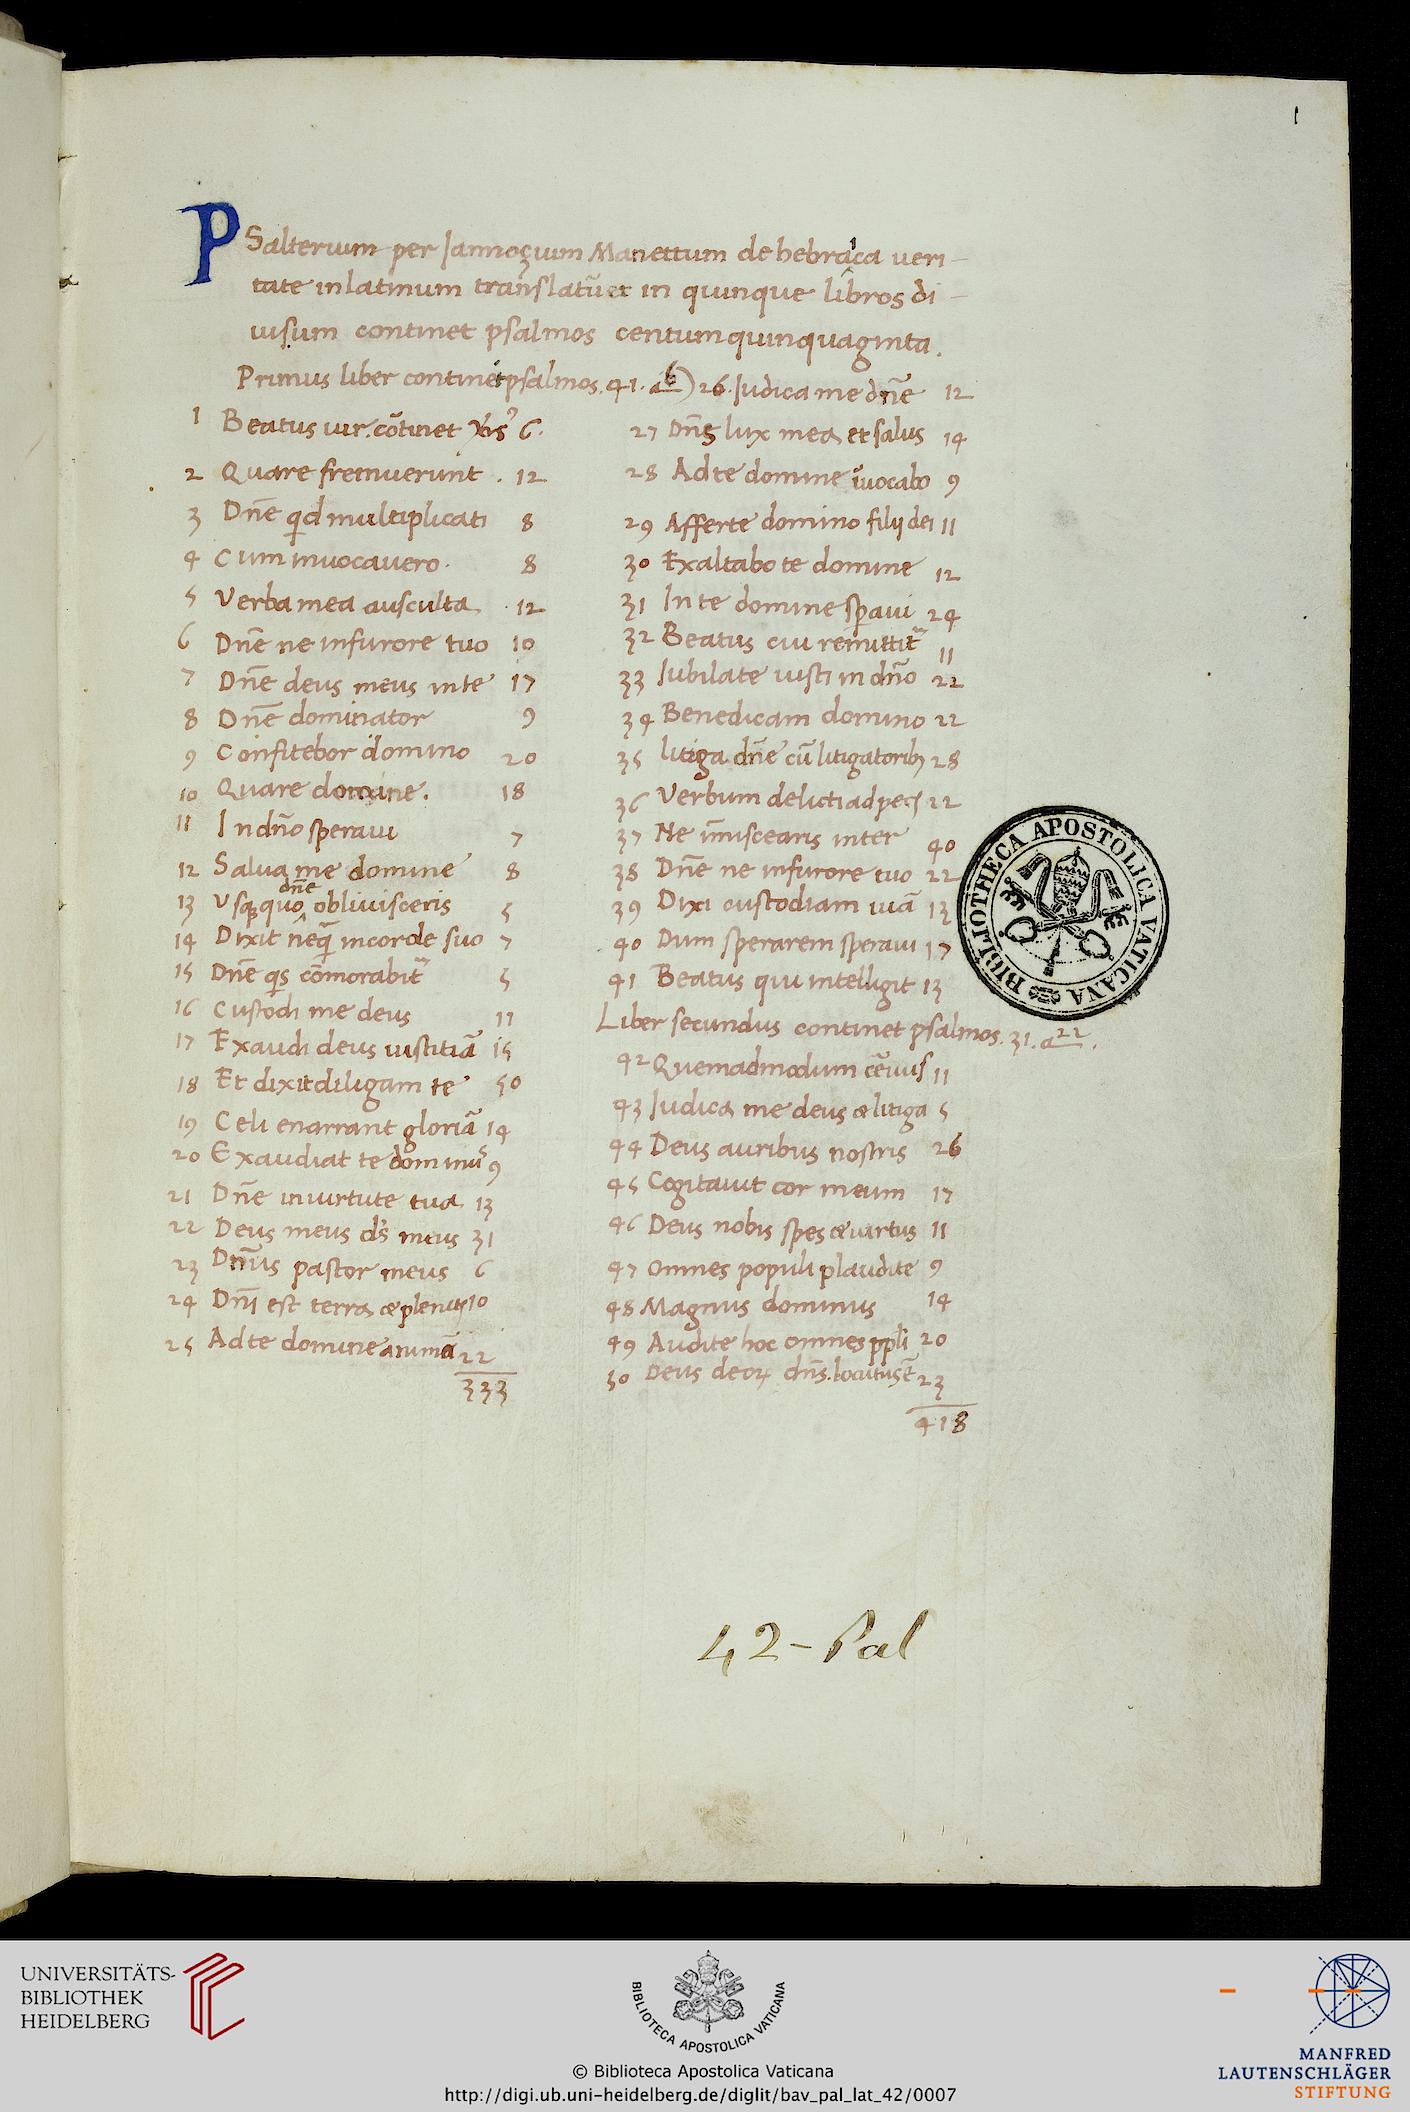 1
PSalterium per Jannozium Manettum de hebraica veri-
tate in latinum translatū et in quinque libros di-
uisum continet psalmos centumquinquaginta.
Primus liber continet psalmos. 41. a 6)
1 Beatus uir. cōtinet 6.
2 Quare fremuerunt . 12
3 Dn̄e qid multiplicati 8
4 Cum inuocauero. 8
5 Verba mea ausculta . 12
6 Dn̄e ne in furore tuo 10
7 Dn̄e deus meus in te 17
8 Dn̄e dominator 9
9 Confitebor domino 20
10 Quare domine. 18
11 In dn̄o speraui 7
12 Salua me domine 8
13 Vsq quo dn̄e obliuisceris 5
14 Dixit neq̄ in corde suo 7
15 Dn̄e qis cōmorabit 5
16 Custodi me deus 11
17 Exaudi deus iustitiā 15
18 Et dixit diligam te 50
19 Celi enarrant gloriā 14
20 Exaudiat te dominus 9
21 Dn̄e in uirtute tua 13
22 Deus meus ds meus 31
23 Dnūs pastor meus 6
24 Dnī est terra & plenit 10
25 Ad te domine animā 22
333
26. Judica me dn̄e 12
27 Dn̄s lux mea et salus 14
28 Ad te domine īuocabo 9
29 Afferte domino filij dei 11
30 Exaltabo te domine 12
31 In te domine speraui 24
32 Beatus cui remittit 11
33 Jubilate iusti in dn̄o 22
34 Benedicam domino 22
35 litiga dn̄e cū litigatorib 28
36 Verbum delicti ad pec 22
37 Ne īmiscearis inter 40
38 Dn̄e ne in furore tuo 22
39 Dixi custodiam uiā 13
40 Dum sperarem speraui 17
41 Beatus qui intelligit 13
Liber secundus continet psalmos. 31. a 22.
42 Quemadmodum ceruus 11
43 Judica me deus & litiga 5
44 Deus auribus nostris 26
45 Cogitauit cor meum 17
46 Deus nobis spes & uirtus 11
47 Omnes populi plaudite 9
48 Magnus dominus 14
49 Audite hoc omnes ppli 20
50 Deus deoꝝ dn̄s. locutus ē 23
418
BIBLIOTHECA APOSTOLICA VATICANA
42-Pal
UNIVERSITÄTS-
BIBLIOTHEK
HEIDELBERG
BIBLIOTECA APOSTOLICA VATICANA
© Biblioteca Apostolica Vaticana
http://digi.ub.uni-heidelberg.de/diglit/bav_pal_lat_42/0007
MANFRED
LAUTENSCHLÄGER
STIFTUNG